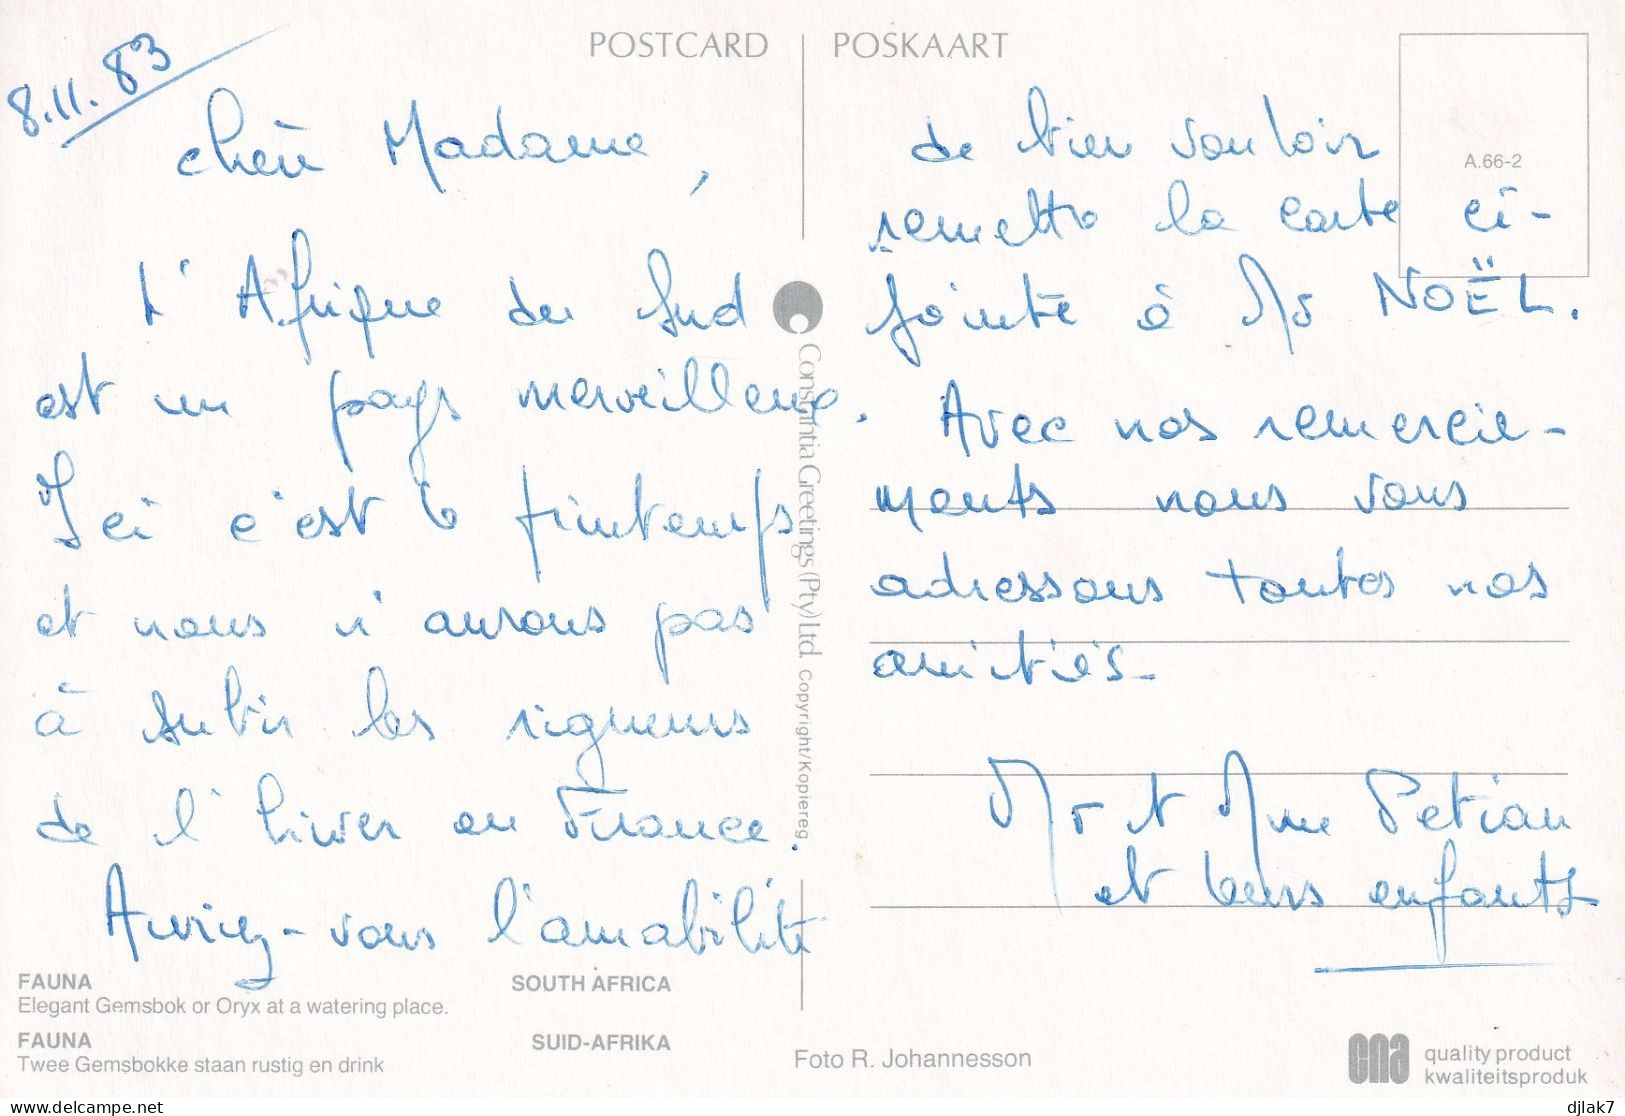 POSTCARD
POSKAART
8.11.83
A.66-2
Chère Madame,
L'Afrique du Sud
est un pays merveilleux.
Ici c'est le printemps
et nous n'aurons pas
à subir les rigueurs
de l'hiver en France.
Auriez-vous l'amabilité
de bien vouloir
remettre la carte ci-
jointe à Mr NOËL.
Avec nos remercie-
ments nous vous
adressons toutes nos
amitiés.
Mr et Mme
et leurs enfants
Constantia Greetings (Pty) Ltd. Copyright/Kopiereg
FAUNA
SOUTH AFRICA
Elegant Gemsbok or Oryx at a watering place.
FAUNA
SUID-AFRIKA
Twee Gemsbokke staan rustig en drink
Foto R. Johannesson
cna
quality product
kwaliteitsproduk
delcampe.net
djlak7